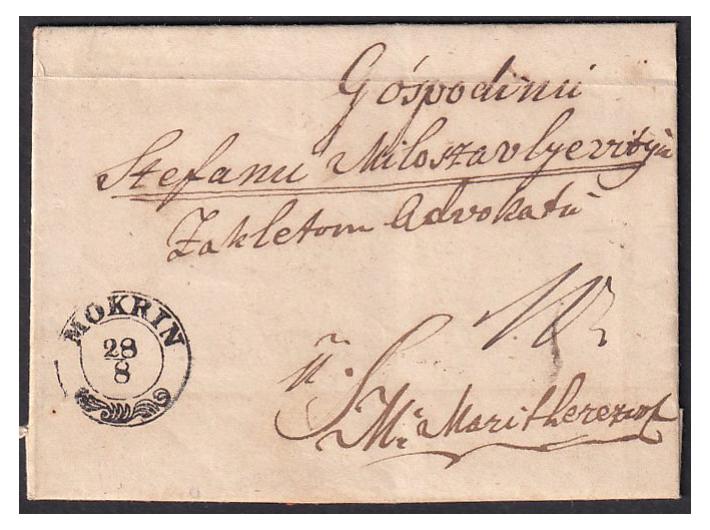 Góspodinu
Stefanu Miloszavlyevityu
Zakletom Advokatu
MOKRIN
28
8
u
Mr Maritherezwol